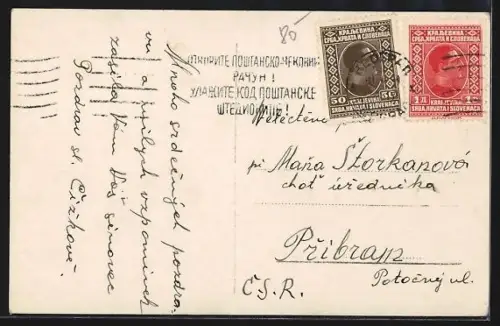 80-
ОТВОРИТЕ ПОШТАНСКО-ЧЕКОВНИ
РАЧУН!
УЛАЖИТЕ КОД ПОШТАНСКЕ
ШТЕДИОНИЦЕ!
КРАЉЕВИНА
СРБА, ХРВАТА И СЛОВЕНАЦА
50 50
KRALJEVINA
SRBA, HRVATA I SLOVENACA
КРАЉЕВИНА
СРБА, ХРВАТА И СЛОВЕНАЦА
1 1
KRALJEVINA
SRBA, HRVATA I SLOVENACA
Mnoho srdečných pozdra-
vů a milých vzpomínek
zasílá Vám Váš synovec
Pozdrav sl. Čížkové.
Velectěná
pí Máňa Štorkánová
choť úředníka
Příbram
Potočný ul.
Č.S.R.